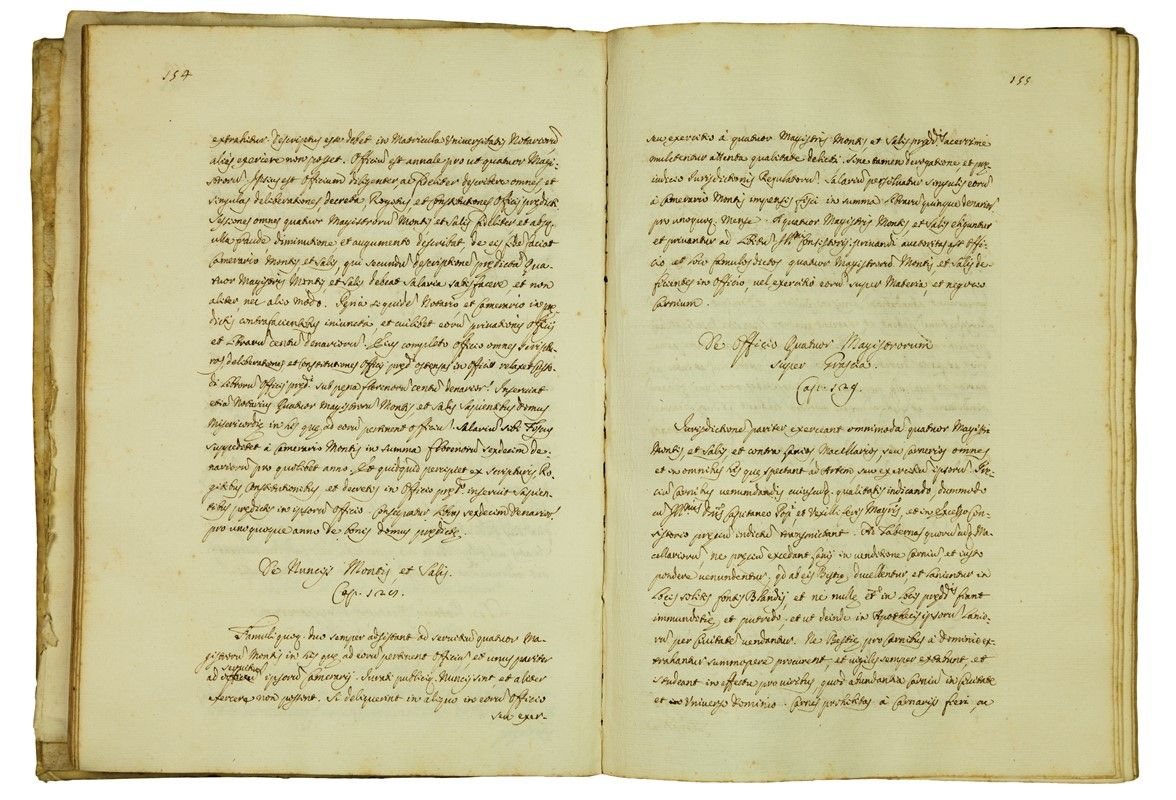 154
extrahitur. Descriptus esse debet in Matricula Universitatis Notariorũ
alias exercere non potest. Officiũ est annale pro ut quatuor Magi-
strorũ. Ipsius est Officium diligenter, ac fideliter describere omnes et
singulas deliberationes, decreta, Rogitus et Constitutiones Officij prędicti
Sessiones omnes quatuor Magistrorũ Montis et Salis fideliter et absq.
ulla fraude diminutione et augumento describat, de eis fidẽ faciat
Camerario Montis et Salis, qui secundũ descriptionẽ prędictã Qua-
tuor Magistris Montis et Salis debeat Salaria satisfacere et non
aliter nec alio modo. Pęna siquidẽ Notario et Camerario in prę-
dictis contrafacientibus iniuncta, et cuilibet eorũ privationis Officij
et librarũ centũ denariorũ. Eius completo officio omnes
deliberationes et Constitutiones Officij pręd.i
Librorũ Officij pręd.i sub pęna florenorũ centũ denarior. Inserviat
etiã Notarius Quatuor magistrorũ Montis et Salis Sapientibus domus
Misericordię in his quę ad eorũ pertinent officiũ. Salariũ sibi
suppeditet à Camerario Montis in summa florenorũ sexdecim de-
nariorũ pro quolibet anno. Et quidquid percipiet ex Scripturis, Ro-
gitibus Constitutionibus, et decretis in Officio pręd.o inserviat Sapien-
tibus prędictis in ipsorũ Officio Consequatur libras sexdecim denarior.
pro unoquoque anno de bonis domus prędictę.
De Nuncijs Montis, et Salis.
Cap. 128.
Famuli quoq. duo semper adsistant ad servitiũ quatuor Ma-
gistrorũ Montis in his quę ad eorũ pertinent Officiũ et unus pariter
servitiũ
ad officiũ ipsorũ Camerarij. Iurati publici Nuncij sint et aliter
exercere non possent. Si deliquerint in aliquo in eorũ Officio
seu exer-
155
seu exercitio à quatuor Magistris Montis, et Salis pręd.is acerrime
mulctentur attenta qualitate delicti. Sine tamen derogatione, et prę-
iudicio Iurisdictionis Regulatorũ. Salariũ persolvatur singulis eorũ
à Camerario Montis impensis fisci in summa librarũ quinque denarior.
pro unoquoq. Mense. A quatuor Magistris Montis et Salis eligantur
et priventur ad libitũ Consistorij, privandi autoritas est Offi-
cio et loco famulos dictos quatuor Magistrorũ Montis et Salis de-
ficientes in Officio, vel exercitio eorũ super Materia, et negocio
Carnium.
De Officio Quatuor Magistrorum
super Grascia.
Cap. 129.
Iurisdictionẽ pariter exerceant omnimodã quatuor Magistri
Montis et Salis et contra Lanios Macellarios seu Carnerios omnes
et in omnibus his quę spectant ad Artem seu exercitiũ ipsorũ. Prę-
ciũ Carnibus venumdandis cuiuscũq. qualitatis indicando, dummodo
cũ DD. Capitaneo Pop.i et Vexillifero Mayris, et in excelso Con-
sistorio pręciũ indictũ transmittant. Ad Tabernas quorũcũq. Ma-
cellariorũ, ne pręciũ excedant Lanij in venditione Carniũ, et iusto
pondere venundentur, qd ad eis Bestię ducellentur, et Lanientur in
locis solitis fontis Blandij, et ne nullę in locis pręd.is fiant
immunditię, et putredo. et ut deinde in Apothecis ipsorũ Lanio-
rũ per Civitatẽ vendantur. Ne Bestię pro Carnibus à dominio ex-
trahantur summopere procurent, et vigiles semper extabunt, et
studeant in effectu pro viribus quod abundantia Carniũ in Civitate
et in Universo dominio. Carnes prohibitas à Carnarijs fieri, ac